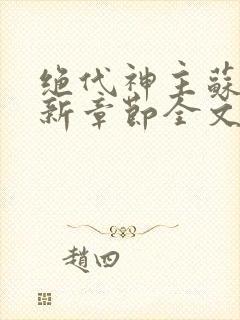 绝代神主蘇
新章節全文
趙四